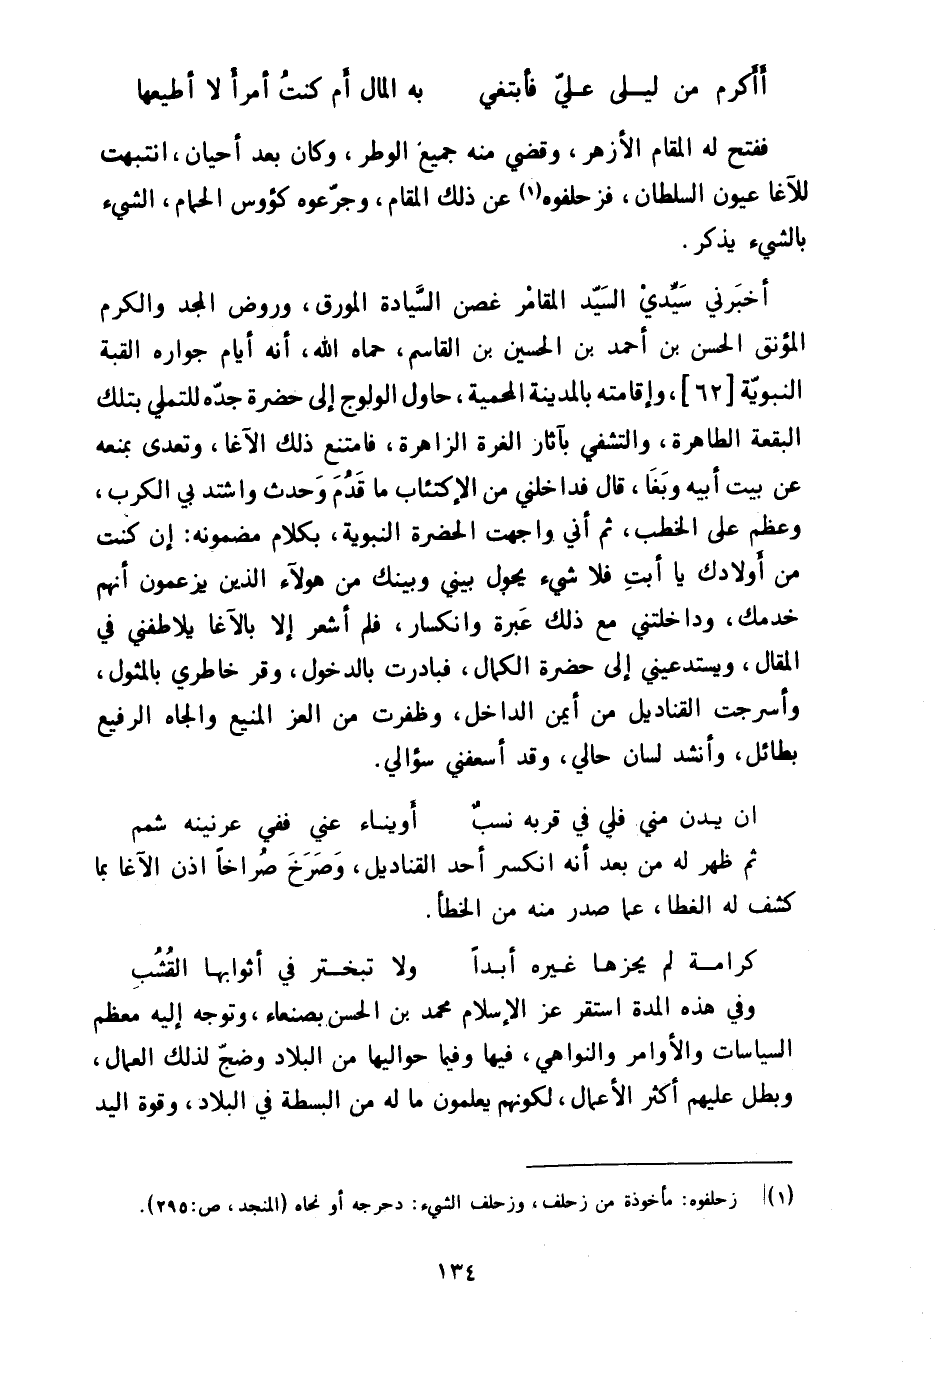 أَأَكرم من ليـلى عليّ فأبتغي به المال أَم كنتُ أمرأً لا أطيعها
ففتح له المقام الأزهر، وقضي منه جميع الوطر، وكان بعد أحيان، انتبهت
للآغا عيون السلطان، فزحلفوه(١) عن ذلك المقام، وجرّعوه كؤوس الحمام، الشيء
بالشيء يذكر.
أخبَرني سَيِّديْ السَيّد المقامْر غصن السَّيادة المورق، وروض المجد والكرم
المؤنق الحسن بن أحمد بن الحسين بن القاسم، حماه الله، أنه أيام جواره القبة
النبويّة [٦٢]، وإقامته بالمدينة المحمية، حاول الولوج إلى حضرة جدّه للتملي بتلك
البقعة الطاهرة، والتشفي بآثار الغرة الزاهرة، فامتنع ذلك الآغا، وتعدى بمنعه
عن بيت أبيه وبَغَا، قال فداخلني من الإكتئاب ما قَدُمَ وَحدث واشتد بي الكرب،
وعظم على الخطب، ثم أني واجهت الحضرة النبوية، بكلام مضمونه: إن كنت
من أَولادك يا أبتِ فلا شيء يحول بيني وبينك من هولآء الذين يزعمون أنهم
خدمك، وداخلتني مع ذلك عَبرة وانكسار، فلم أشعر إلا بالآغا يلاطفني في
المقال، ويستدعيني إلى حضرة الكمال، فبادرت بالدخول، وقر خاطري بالمثول،
وأسرجت القناديل من أيمن الداخل، وظفرت من العز المنيع والجاه الرفيع
بطائل، وأنشد لسان حالي، وقد أسعفني سؤالي.
ان يـدن مني فلي في قربه نسبٌ أَوينـاء عني ففي عرنينه شمم
ثم ظهر له من بعد أنه انكسر أحد القناديل، وَصَرَخَ صُراخاً اذن الآغا بما
كشف له الغطا، عما صدر منه من الخطأ.
كرامـة لم يحزهـا غـيره أبـداً ولا تبخـتر في أثوابهـا القُشُبِ
وفي هذه المدة استقر عز الإسلام محمد بن الحسن بصنعاء، وتوجه إليه معظم
السياسات والأوامر والنواهي، فيها وفيما حواليها من البلاد وضجّ لذلك العمال،
وبطل عليهم أكثر الأعمال، لكونهم يعلمون ما له من البسطة في البلاد، وقوة اليد
(١) زحلفوه: مأخوذة من زحلف، وزحلف الشيء: دحرجه أو نحاه (المنجد، ص:٢٩٥).
١٣٤